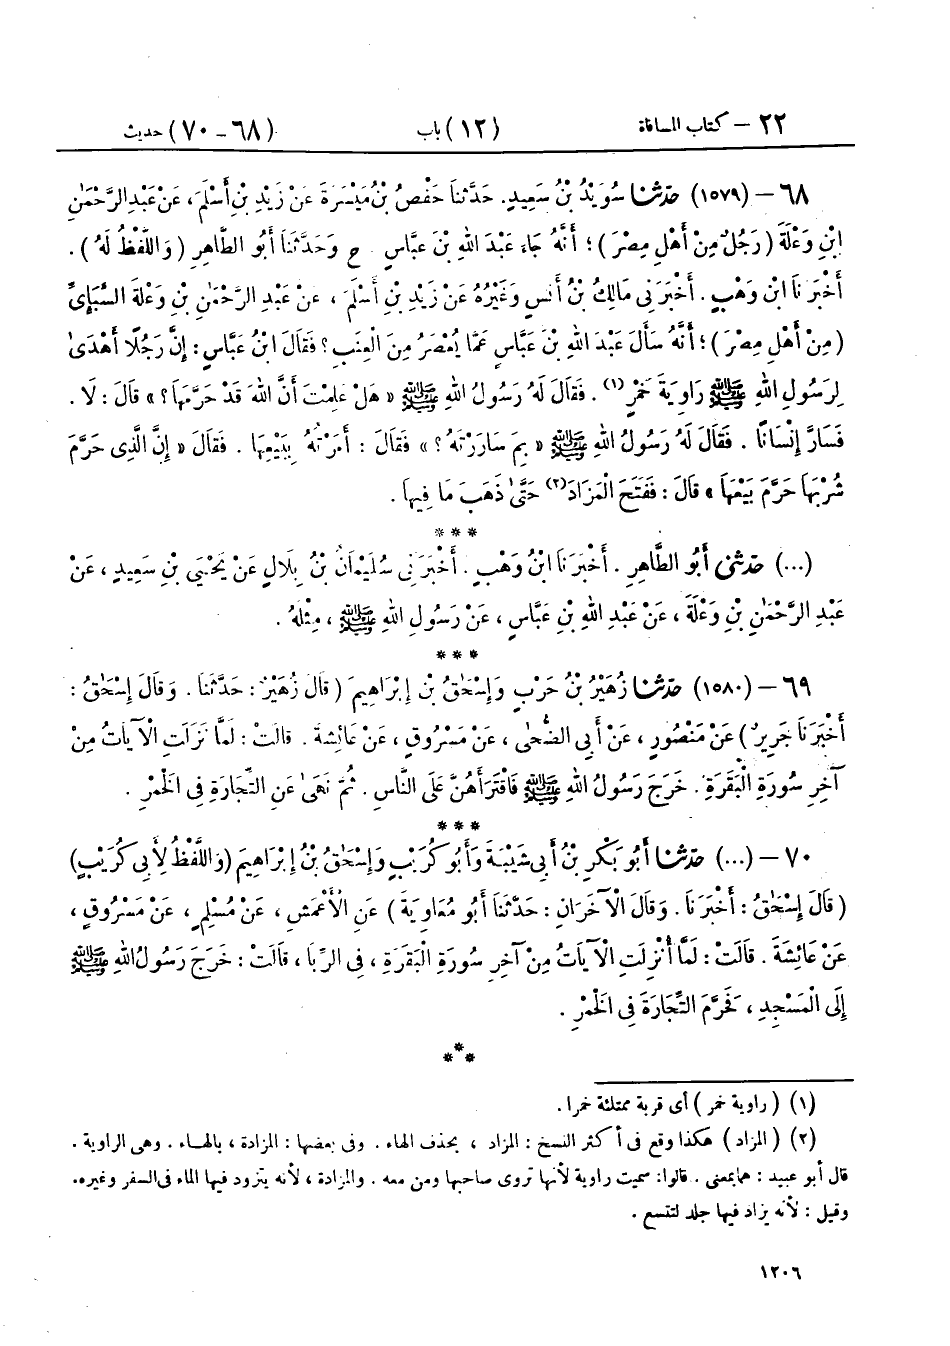 ٢٢ – كتاب المساقاة (١٢) باب (٦٨ – ٧٠) حديث
٦٨ – (١٥٧٩) حَدَّثَنَا سُوَيْدُ بْنُ سَعِيدٍ. حَدَّثَنَا حَفْصُ بْنُ مَيْسَرَةَ عَنْ زَيْدِ بْنِ أَسْلَمَ، عَنْ عَبْدِ الرَّحْمٰنِ
ابْنِ وَعْلَةَ (رَجُلٌ مِنْ أَهْلِ مِصْرَ)؛ أَنَّهُ جَاءَ عَبْدَ اللهِ بْنَ عَبَّاسٍ. ح وَحَدَّثَنَا أَبُو الطَّاهِرِ (وَاللَّفْظُ لَهُ).
أَخْبَرَنَا ابْنُ وَهْبٍ. أَخْبَرَنِي مَالِكُ بْنُ أَنَسٍ وَغَيْرُهُ عَنْ زَيْدِ بْنِ أَسْلَمَ، عَنْ عَبْدِ الرَّحْمٰنِ بْنِ وَعْلَةَ السَّبَإِيِّ
(مِنْ أَهْلِ مِصْرَ)؛ أَنَّهُ سَأَلَ عَبْدَ اللهِ بْنَ عَبَّاسٍ عَمَّا يُعْصَرُ مِنَ الْعِنَبِ؟ فَقَالَ ابْنُ عَبَّاسٍ: إِنَّ رَجُلًا أَهْدَىٰ
لِرَسُولِ اللهِ ﷺ رَاوِيَةَ خَمْرٍ(١). فَقَالَ لَهُ رَسُولُ اللهِ ﷺ «هَلْ عَلِمْتَ أَنَّ اللهَ قَدْ حَرَّمَهَا؟» قَالَ: لَا.
فَسَارَّ إِنْسَانًا. فَقَالَ لَهُ رَسُولُ اللهِ ﷺ «بِمَ سَارَرْتَهُ؟» فَقَالَ: أَمَرْتُهُ بِبَيْعِهَا. فَقَالَ «إِنَّ الَّذِي حَرَّمَ
شُرْبَهَا حَرَّمَ بَيْعَهَا» قَالَ: فَفَتَحَ الْمَزَادَ(٢) حَتَّىٰ ذَهَبَ مَا فِيهَا.
***
(...) حَدَّثَنِي أَبُو الطَّاهِرِ. أَخْبَرَنَا ابْنُ وَهْبٍ. أَخْبَرَنِي سُلَيْمَانُ بْنُ بِلَالٍ عَنْ يَحْيَىٰ بْنِ سَعِيدٍ، عَنْ
عَبْدِ الرَّحْمٰنِ بْنِ وَعْلَةَ، عَنْ عَبْدِ اللهِ بْنِ عَبَّاسٍ، عَنْ رَسُولِ اللهِ ﷺ، مِثْلَهُ.
***
٦٩ – (١٥٨٠) حَدَّثَنَا زُهَيْرُ بْنُ حَرْبٍ وَإِسْحٰقُ بْنُ إِبْرَاهِيمَ (قَالَ زُهَيْرٌ: حَدَّثَنَا. وَقَالَ إِسْحٰقُ:
أَخْبَرَنَا جَرِيرٌ) عَنْ مَنْصُورٍ، عَنْ أَبِي الضُّحَىٰ، عَنْ مَسْرُوقٍ، عَنْ عَائِشَةَ. قَالَتْ: لَمَّا نَزَلَتِ الْآيَاتُ مِنْ
آخِرِ سُورَةِ الْبَقَرَةِ. خَرَجَ رَسُولُ اللهِ ﷺ فَاقْتَرَأَهُنَّ عَلَى النَّاسِ. ثُمَّ نَهَىٰ عَنِ التِّجَارَةِ فِي الْخَمْرِ.
***
٧٠ – (...) حَدَّثَنَا أَبُو بَكْرِ بْنُ أَبِي شَيْبَةَ وَأَبُو كُرَيْبٍ وَإِسْحٰقُ بْنُ إِبْرَاهِيمَ (وَاللَّفْظُ لِأَبِي كُرَيْبٍ)
(قَالَ إِسْحٰقُ: أَخْبَرَنَا. وَقَالَ الْآخَرَانِ: حَدَّثَنَا أَبُو مُعَاوِيَةَ) عَنِ الْأَعْمَشِ، عَنْ مُسْلِمٍ، عَنْ مَسْرُوقٍ،
عَنْ عَائِشَةَ. قَالَتْ: لَمَّا أُنْزِلَتِ الْآيَاتُ مِنْ آخِرِ سُورَةِ الْبَقَرَةِ، فِي الرِّبَا، قَالَتْ: خَرَجَ رَسُولُ اللهِ ﷺ
إِلَى الْمَسْجِدِ، فَحَرَّمَ التِّجَارَةَ فِي الْخَمْرِ.
***
(١) (راوية خمر) أى قربة ممتلئة خمرا.
(٢) (المزاد) هكذا وقع فى أكثر النسخ: المزاد، بحذف الهاء. وفى بعضها: المزادة، بالهاء. وهى الراوية.
قال أبو عبيد: هما بمعنى. قالوا: سميت راوية لأنها تروى صاحبها ومن معه. والمزادة، لأنه يتزود فيها الماء فى السفر وغيره.
وقيل: لأنه يزاد فيها جلد لتتسع.
١٢٠٦